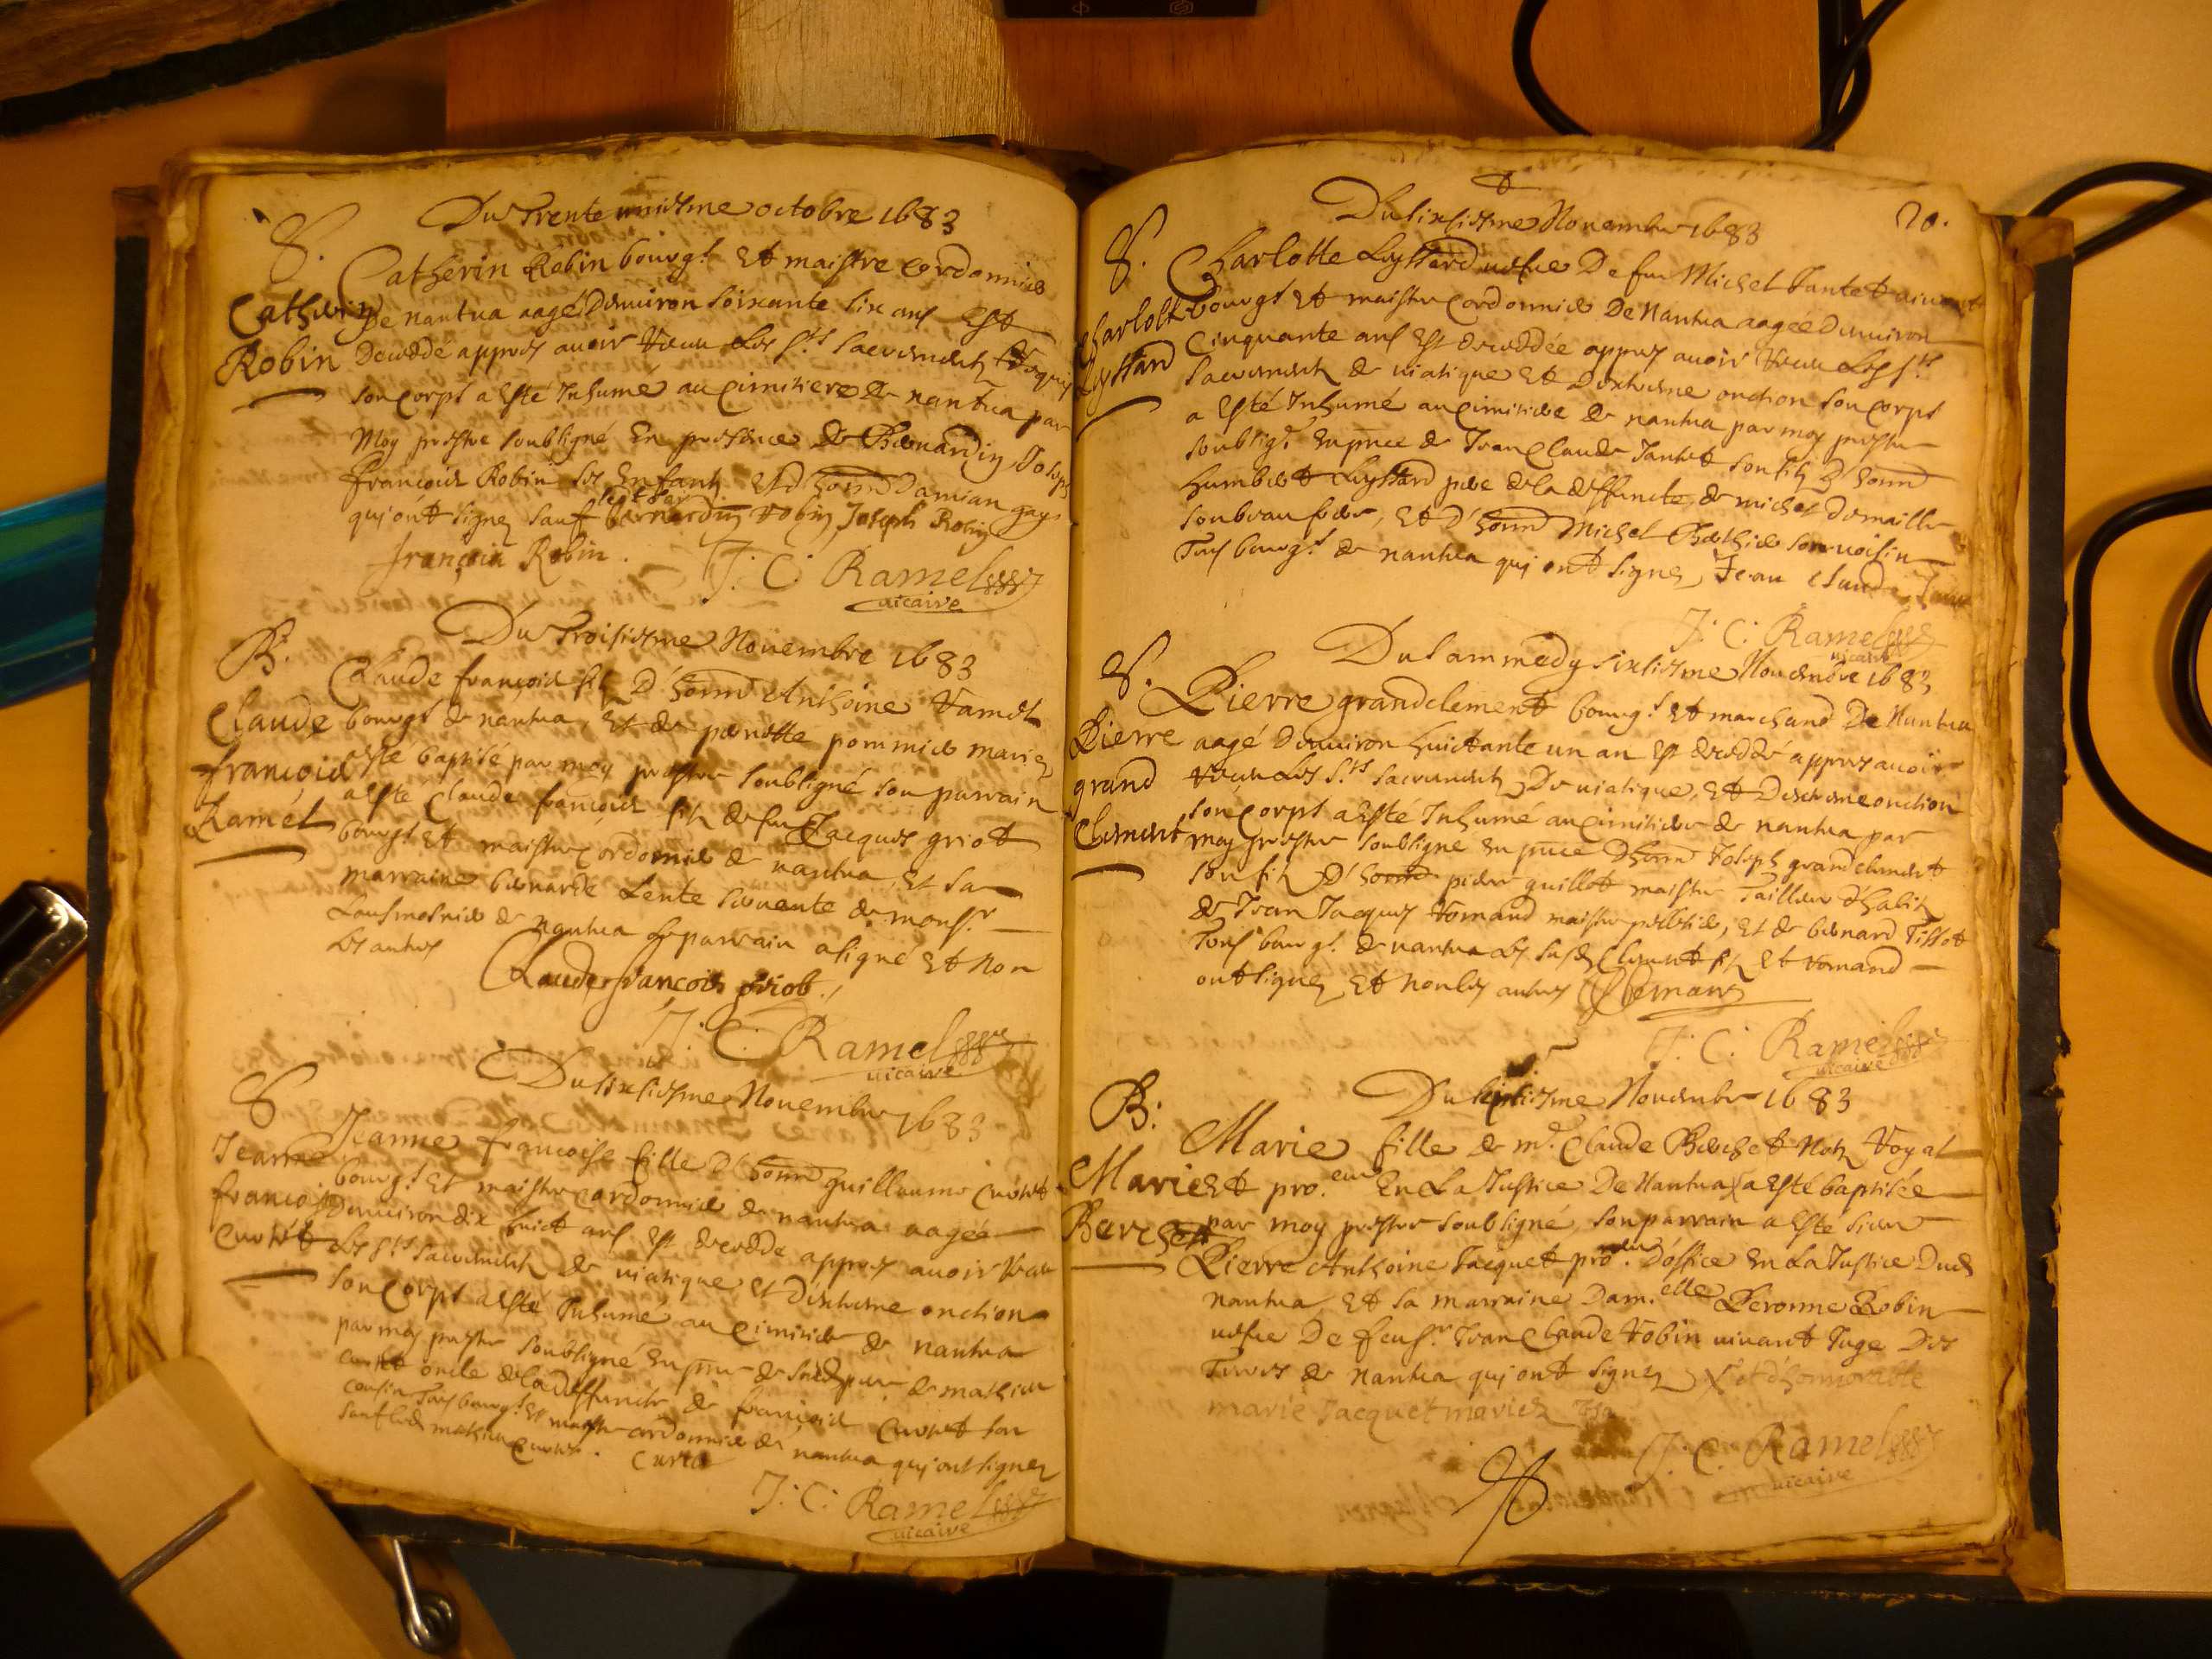 Du Trente uniesme octobre 1683
S.
Catherin Robin bourg.s Et maistre cordonnier
Catherin
Robin
De nantua aagé D'environ soixante six ans Est
Decedé appres avoir Receu Les S.ts sacrements
son corps a Esté Inhumé au Cimitiere de nantua par
Moy prestre soubsigné En presence de Bernardin Joseph
François Robin ses Enfants Et d'honn Damian gay
qui ont signez sauf bernardin robin Joseph Robin
françois Robin.
J: C: Ramel
vicaire
Du Troisiesme Novembre 1683
B.
Claude
françois
Ramel
Claude françois filz D'honn Anthoine Ramel
bourgs de nantua, Et de pernette pommier mariez
a esté baptisé par moy prestre soubsigné son parrain
a esté Claude françois filz de feu Jacques griot
bourgs Et maistre cordonnier de nantua, Et sa
marraine bernarde Lente servente de mons.r
Lausmosnier de nantua Le parrain a signé Et non
Les autres
Claude françois griot
J: C: Ramel
vicaire
Du sixsiesme Novembre 1683
S
Jeanne
françoise
Curtet
Jeanne françoise fille D'honn guillaume Curtet
bourg.s Et maistre cordonnier de nantua aagée
D'environ dix huict ans Est decedée appres avoir Receu
Les S.ts sacrements de viatique et D'extresme onction
son Corps a esté Inhumé au Cimitiere de nantua
par moy prestre soubsigné En pnce de sud pere de mathieu
curtet oncle de la deffuncte de françois Curtet son
cousin Tous bourg.s Et maistre cordonnier de nantua qui ont signez
sauf led mathieu Curtet. Curtet
J: C: Ramel
vicaire
20.
Du sixsiesme Novembre 1683
S.
Charlotte
Lyttard
Charlotte Lyttard vefve De feu Michel Tantet vivant
bourgs Et maistre cordonnier De Nantua aagée D'environ
Cinquante ans Est decedée appres avoir Receu Les S.ts
sacrements de viatique Et D'extresme onction son corps
a Esté Inhumé au Cimitiere de nantua par moy prestre
soubsig.é En pnce de Jean Claude Tantet son filz D'honn
humbert Lyttard pere de la deffuncte, de michel Demailler
son beau frere, Et D'honn Michel Berthier son voisin
Tous bourg.s de nantua qui ont signez, Jean Claude
J: C: Ramel
vicaire
Du sammedy sixsiesme Novembre 1683
S.
Pierre
grand
Clement
Pierre grandclement bourg.s Et marchand De Nantua
aagé D'environ huictante un an Est decedé appres avoir
receu Les S.ts sacrements De viatique, Et D'extresme onction
son Corps a Esté Inhumé au Cimitiere de nantua par
moy prestre soubsigné En pnce D'honn Joseph grandclement
son filz D'honn pierre guillot maistre Tailleur d'habits
de Jean Jacques romand maistre pelletier, Et de bernard Tissot
Tous bourg.s de nantua Les susd Clement filz Et romand
ont signez Et non les autres Clement
J: C: Ramel
vicaire
Du septiesme Novembre 1683
B:
Marie
Berchet
Marie fille de m.e Claude Berchet Not. Royal
Et pro.eur En La Justice De Nantua X a Esté baptisée
par moy prestre soubsigné, son parrain a Esté sieur
Pierre Anthoine Jacquet pro.eur D'office En La Justice Dud
nantua, Et sa marraine Dam.elle Peronne Robin
vefve De feu s.r Jean Claude Robin vivant Juge Des
Terres de nantua qui ont signez X et d'honnorable
marie Jacquet mariez
J: C: Ramel
vicaire